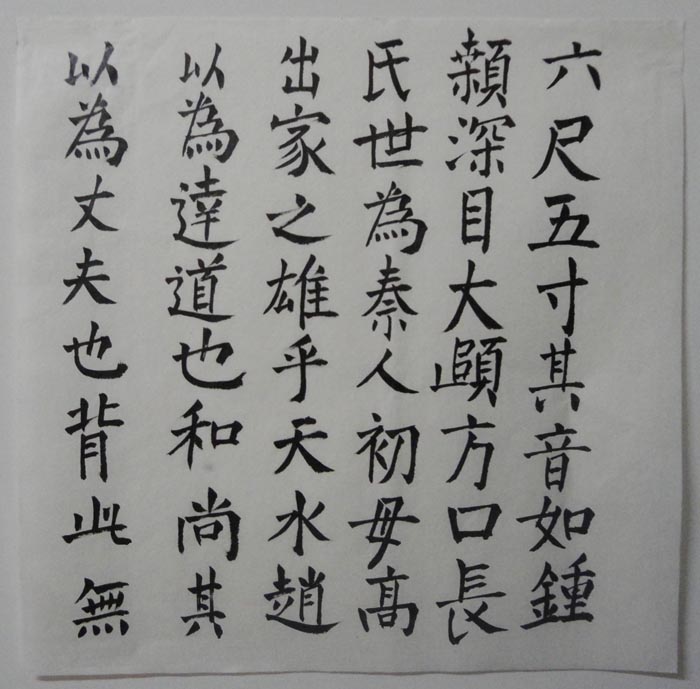 以為丈夫也背此無
以為達道也和尚其
出家之雄乎天水趙
氏世為秦人初母髙
顙深目大頤方口長
六尺五寸其音如鍾